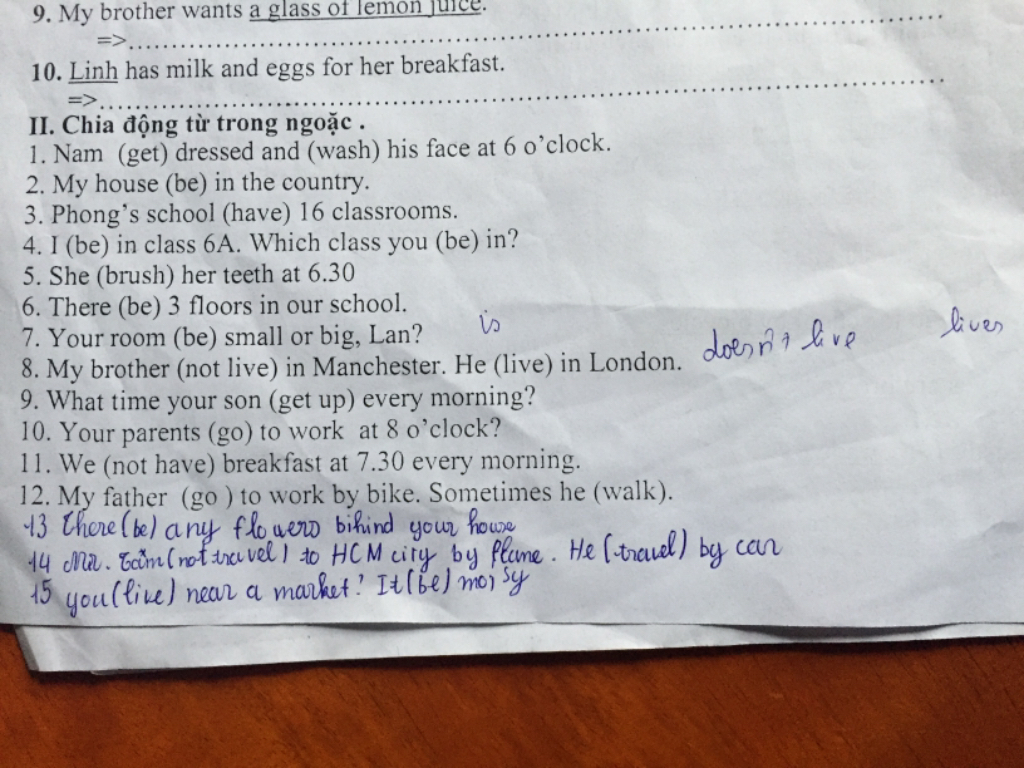 9. My brother wants a glass of lemon juice.
=>........................................................................
10. Linh has milk and eggs for her breakfast.
=>........................................................................
II. Chia động từ trong ngoặc .
1. Nam (get) dressed and (wash) his face at 6 o’clock.
2. My house (be) in the country.
3. Phong’s school (have) 16 classrooms.
4. I (be) in class 6A. Which class you (be) in?
5. She (brush) her teeth at 6.30
6. There (be) 3 floors in our school.
7. Your room (be) small or big, Lan? is
8. My brother (not live) in Manchester. He (live) in London. doesn't live lives
9. What time your son (get up) every morning?
10. Your parents (go) to work at 8 o’clock?
11. We (not have) breakfast at 7.30 every morning.
12. My father (go ) to work by bike. Sometimes he (walk).
13 There (be) any flowers bihind your house
14 Mr. (not travel) to HCM city by plane. He (travel) by car
15 you (live) near a market? It (be) noisy